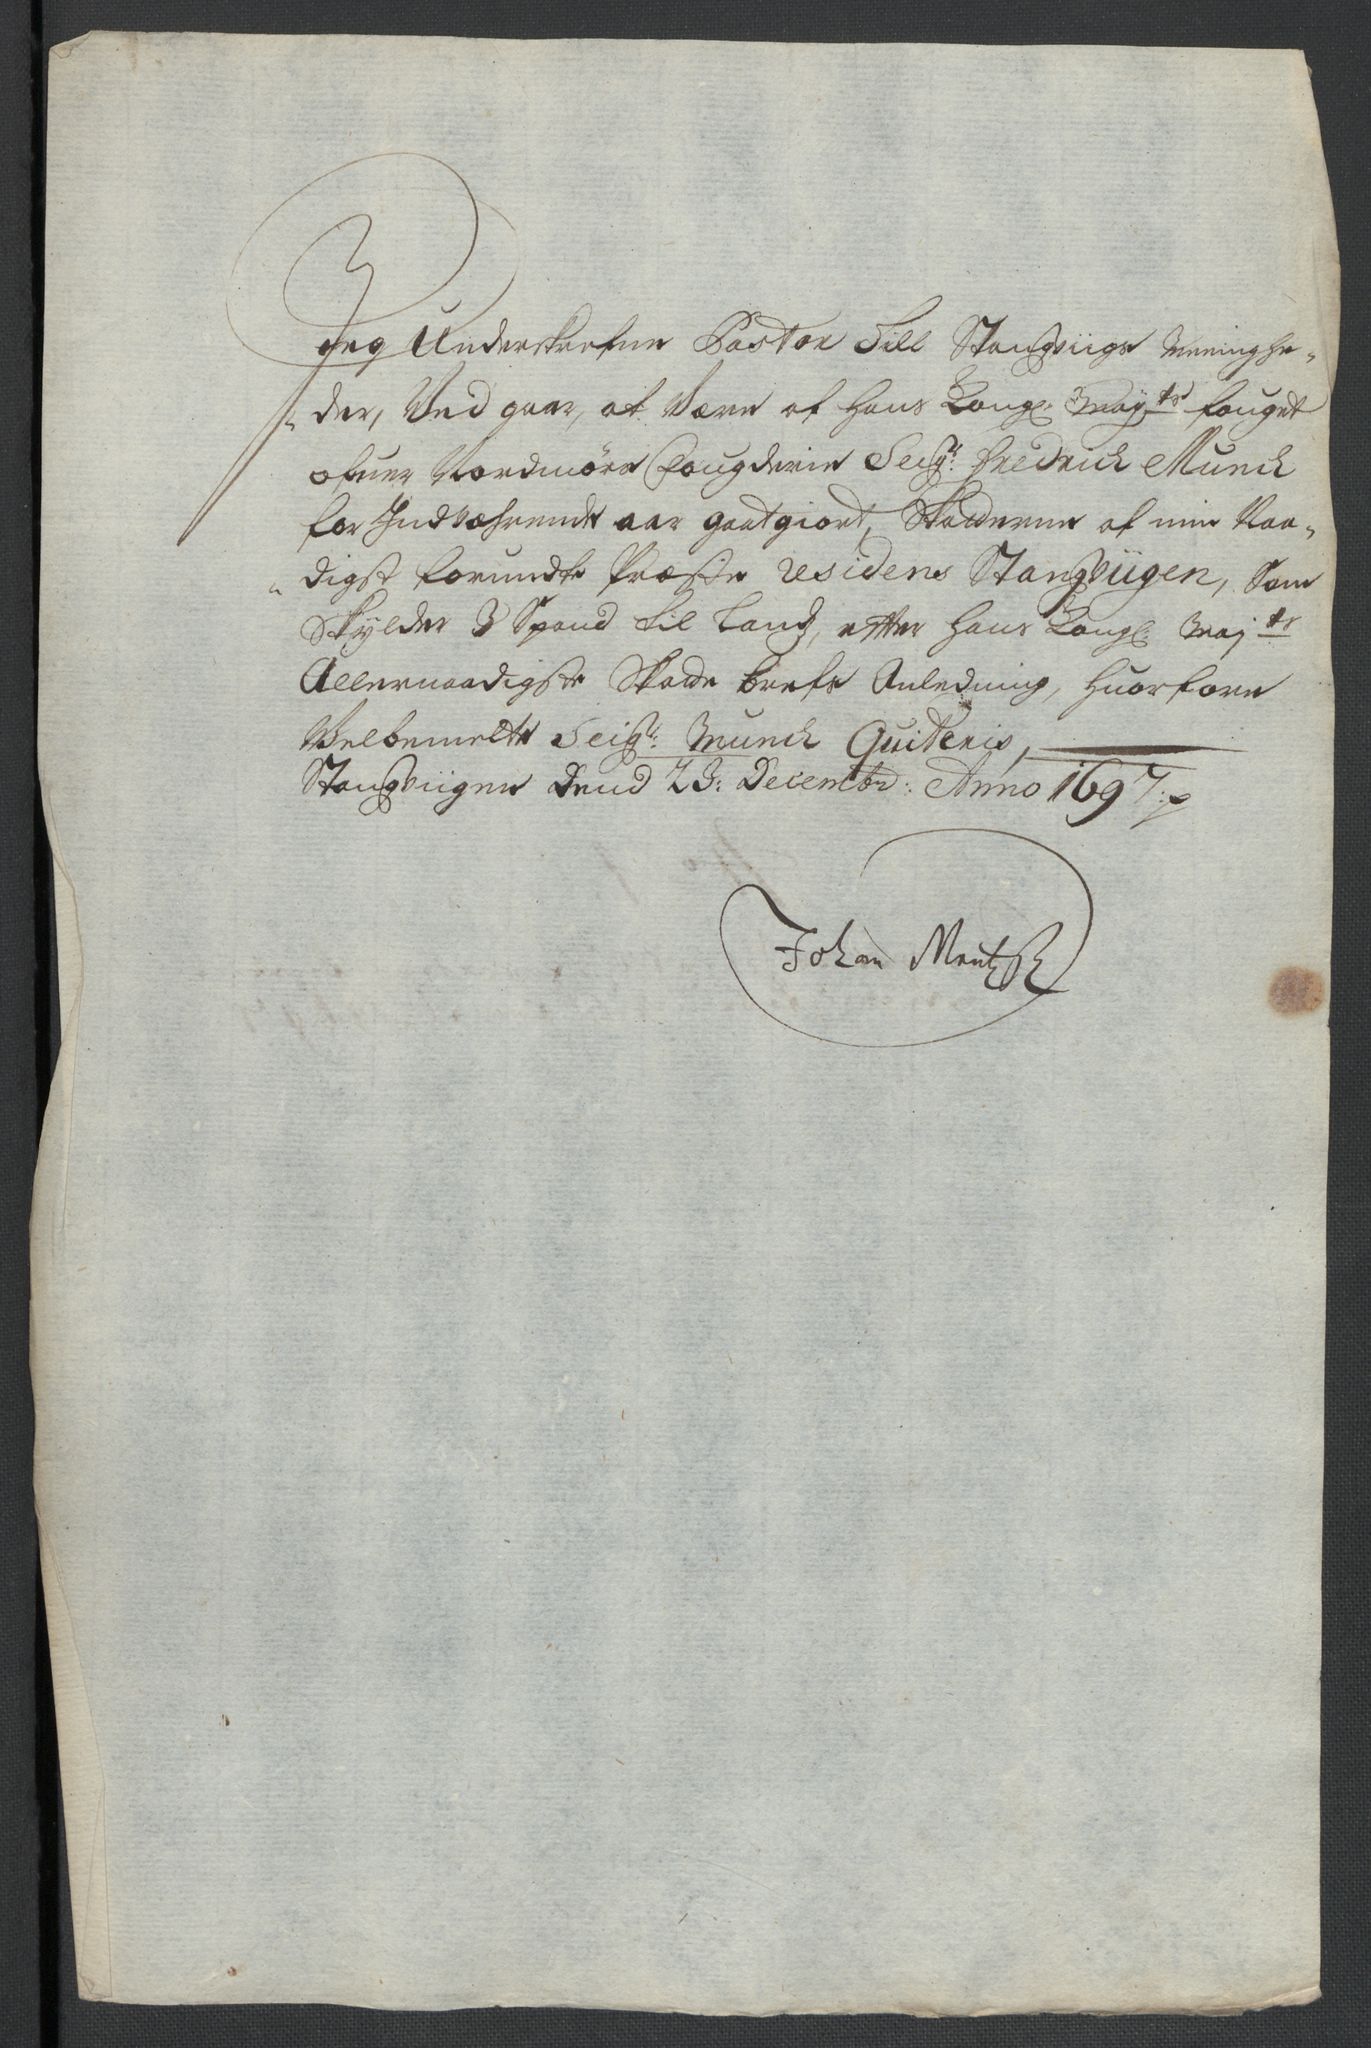 Jeg Underskrefne Pastor Till Stangviigs Meenighe-
der, Ved gaar, at Være af Hans Kongl: Mayts fouget
ofuer Nordmørs Fougderie Seigr: Fredrich Munch
for Indværende aar gaatgiort, Skatterne af min Naa-
digst forundte Præste residens Stangviigen, Som
Skylder 3 Spand til Land, efter Hans Kongl: Majts
Allernaadigste Skatte brefs Anledning, Huorfore
Velbemelte Seigr: Munch Quiteris,
Stangviigen Dend 23: Decembr: Anno 1697:
Johan Mentzsch